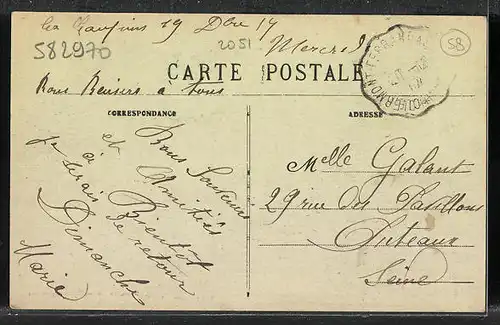 19 Dbre 17
582970
2051
Mercredi
58
Bons Baisers à tous
CARTE POSTALE
CORRESPONDANCE
ADRESSE
Bons Souvenirs
et Amitiés
à Bientôt
je serais de retour
Dimanche
Marie
Melle Galant
29 rue des Pavillons
Puteaux
Seine